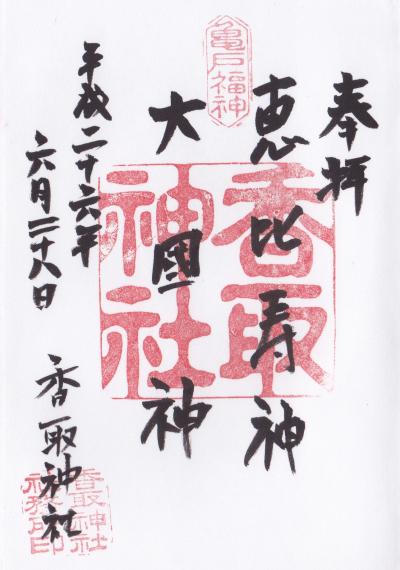 奉拝
亀戸福神
恵比寿神
大國神
香取神社
平成二十六年
六月二十八日
香取神社
香取神社社務所印